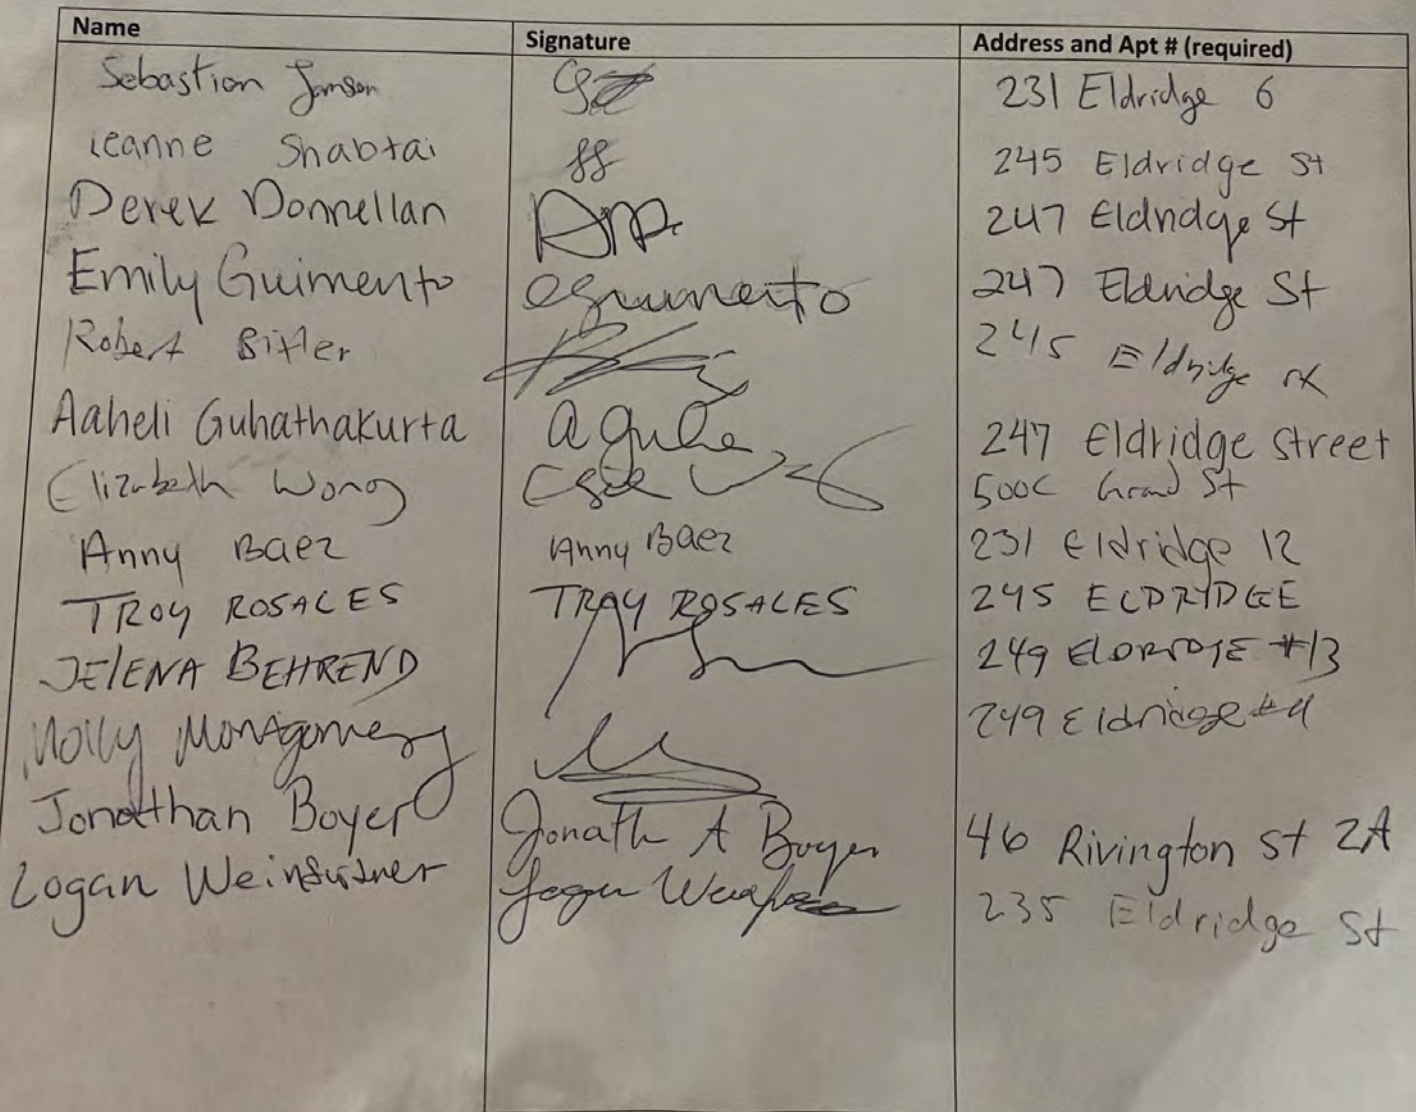 Name Signature Address and Apt # (required)
Sebastian 231 Eldridge 6
Leanne Shabtai 245 Eldridge St
Derek Donnellan 247 Eldridge St
Emily Guimento eguimento 247 Eldridge St
Robert 245 Eldridge
Aaheli Guhathakurta a guha 247 Eldridge Street
Elizabeth Wong 500C Grand St
Anny Baez Anny Baez 231 Eldridge 12
TROY ROSALES TROY ROSALES 245 ELDRIDGE
JELENA BEHREND 249 ELDRIDGE #13
Molly Montgomery 249 Eldridge #4
Jonathan Boyer Jonath A Boyer 46 Rivington St 2A
Logan Logan 235 Eldridge St